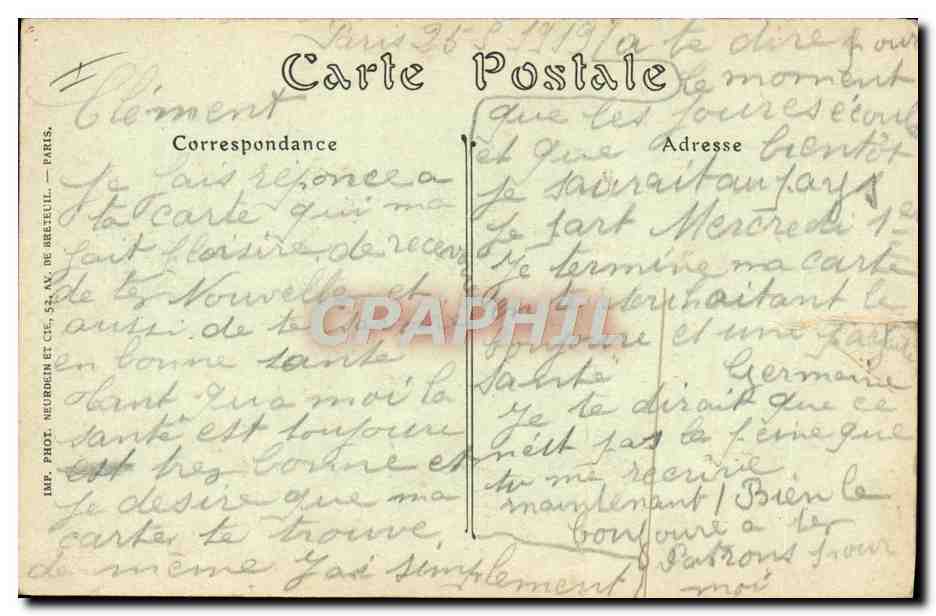 Paris 25 8 1919
Carte Postale
Correspondance
Adresse
IMP. PHOT. NEURDEIN ET CIE, 52, AV. DE BRETEUIL. — PARIS.
CPAPHIL
Clément
Je fais réponce a
ta carte qui ma
fait ploisire de recevoi
de tes Nouvelle et
aussi de te
en bonne santé
tant qua moi la
santé est toujoure
est trez bonne et
je desire que ma
carte te trouve
de même Jai simplement
a te dire pour
le moment
que les joures écoul
et que bientôt
je saurait au pays
Je part Mercredi 1er
Je termine ma carte
en te souhaitant le
bonjoure et une parfaite
santé Germaine
Je te dirait que ce
nést pas la peine que
tu me recrive
maintenant / Bien le
bonjoure a tes
Patrons pour
moi